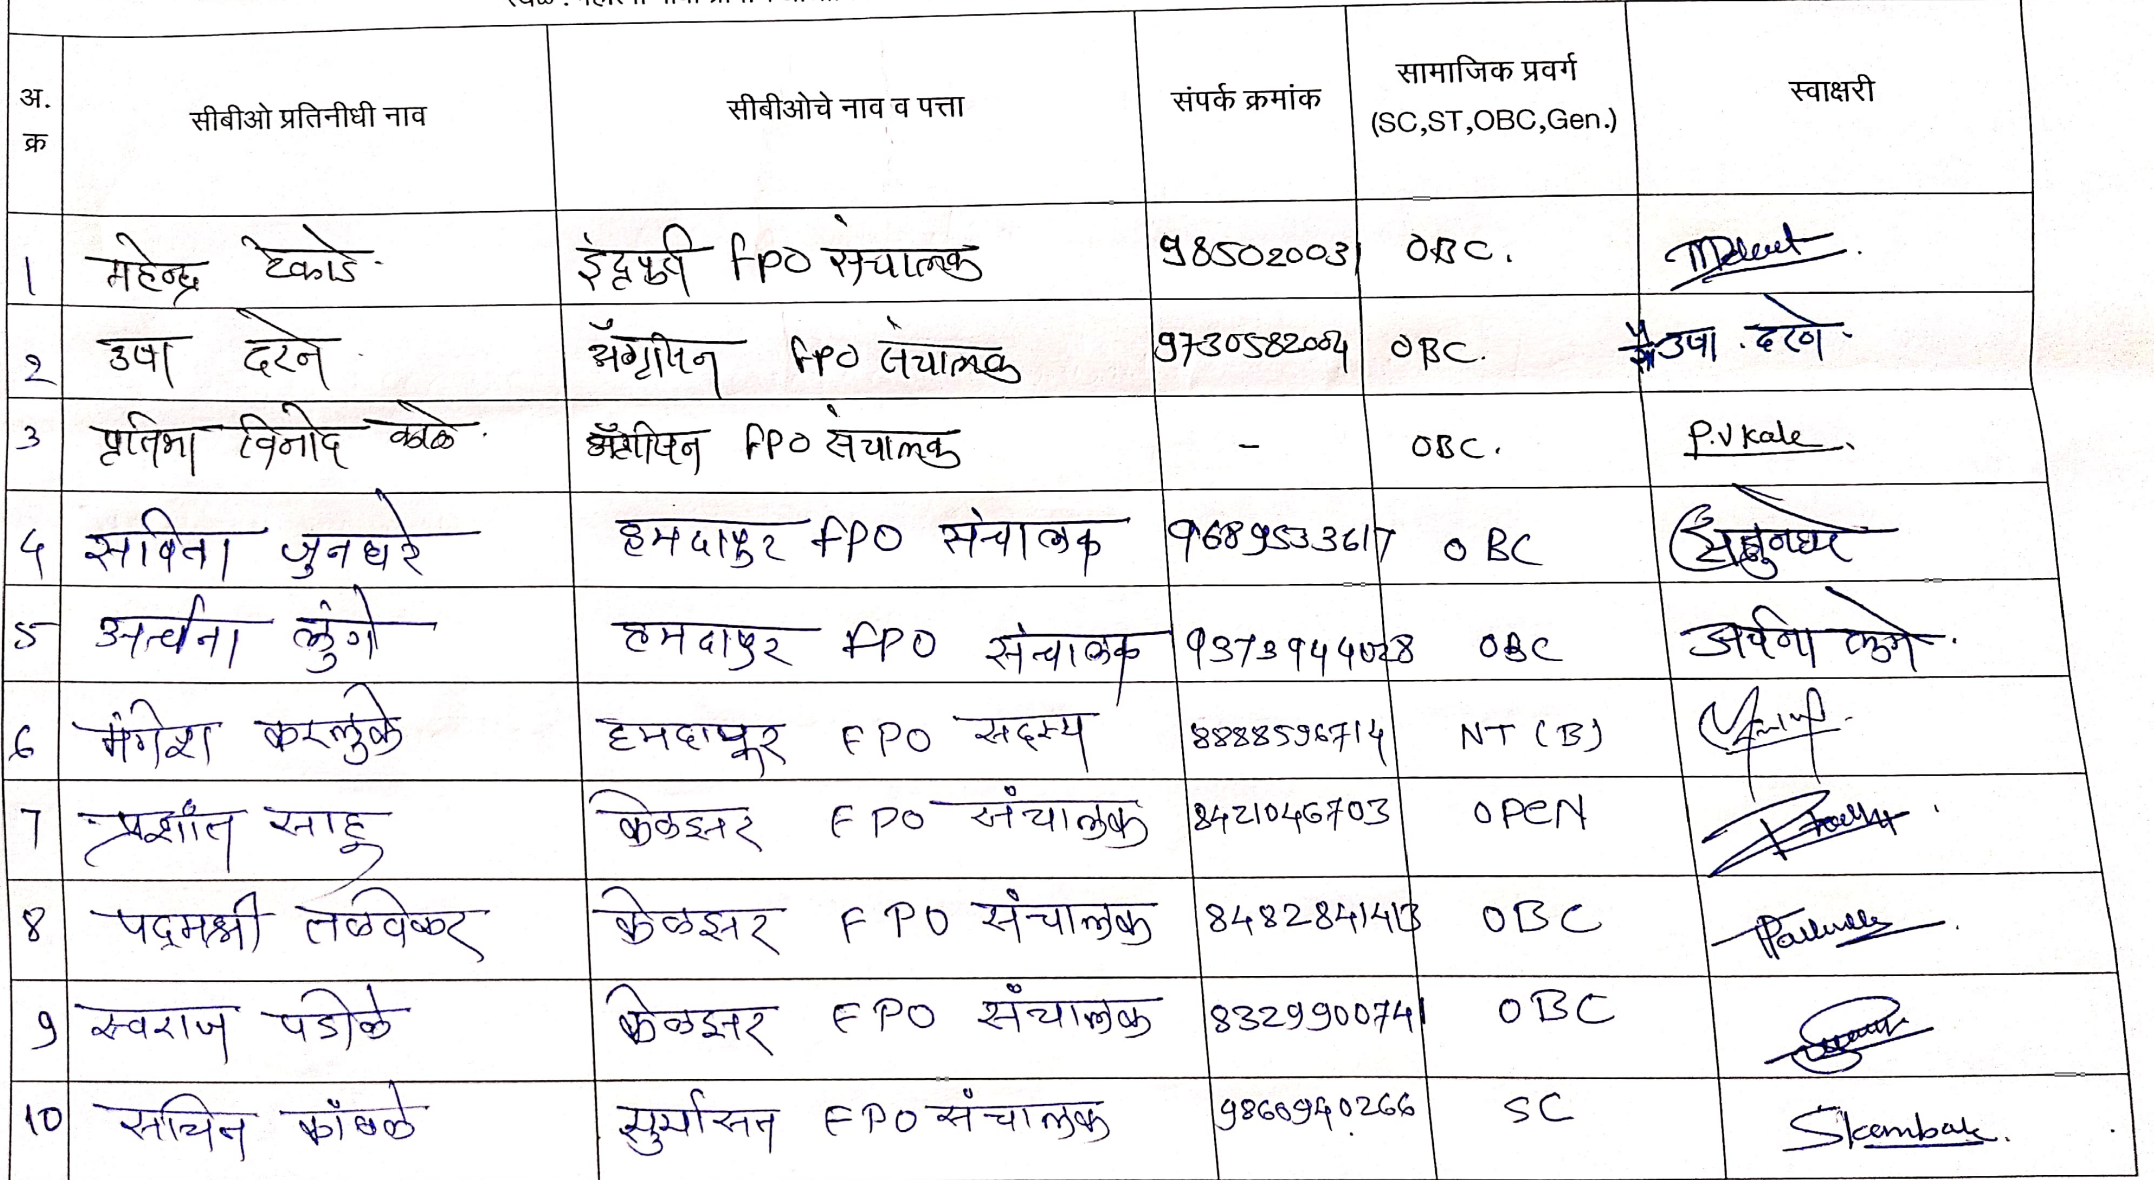 अ. क्र | सीबीओ प्रतिनीधी नाव | सीबीओचे नाव व पत्ता | संपर्क क्रमांक | सामाजिक प्रवर्ग (SC,ST,OBC,Gen.) | स्वाक्षरी
1 | महेन्द्र टेकाडे. | FPO संचालक | 985020031 | OBC.
2 | उषा दरने. | FPO संचालक | 9730582004 | OBC. | उषा . दरणे.
3 | प्रतिभा विनोद काळे. | FPO संचालक | - | OBC. | P.V Kale.
4 | सविता जुनघरे | हमदापुर FPO संचालक | 9689533617 | OBC
5 | अर्चना लुंगे | हमदापुर FPO संचालक | OBC | अर्चना लुंगे.
6 | मंगेश | हमदापूर FPO सदस्य | 8888596714 | NT (B)
7 | प्रशांत साहू | केळझर FPO संचालक | 8421046703 | OPEN
8 | पद्मश्री तळवेकर | केळझर FPO संचालक | 8482841413 | OBC
9 | स्वराज पडोळे | केळझर FPO संचालक | 8329900741 | OBC
10 | सचिन कांबळे | FPO संचालक | SC | Skambale.